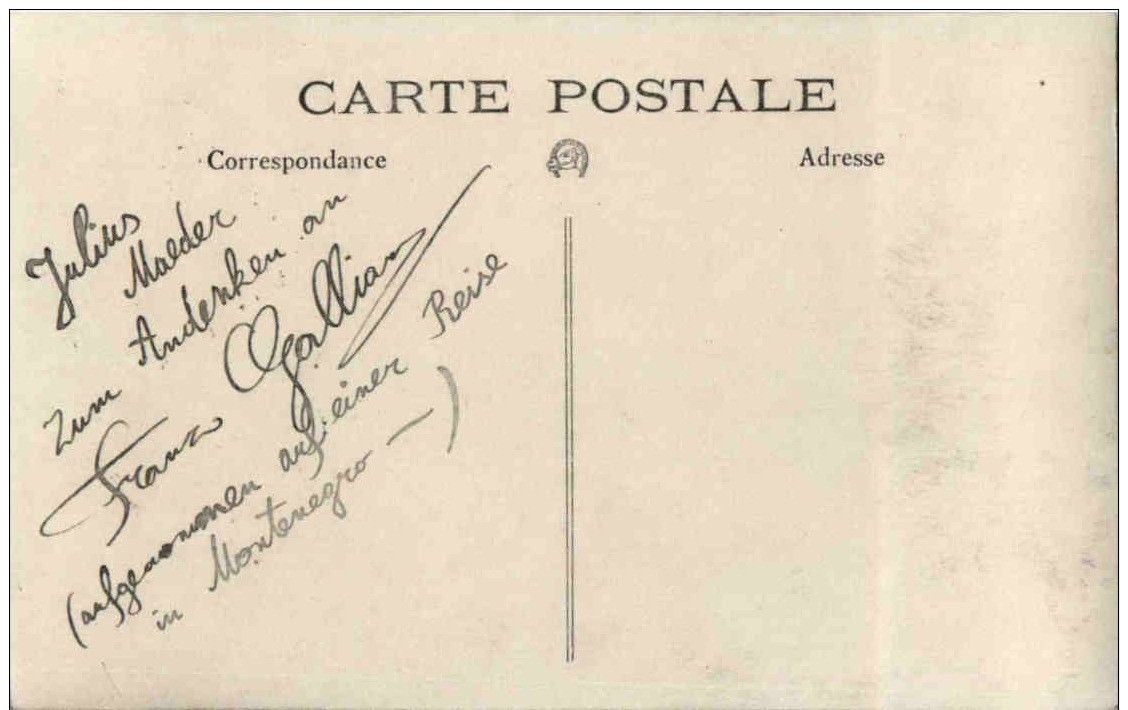 CARTE POSTALE
Correspondance
Adresse
Julius
Maeder
zum Andenken an
Franz
(aufgenommen auf einer Reise
in Montenegro —)